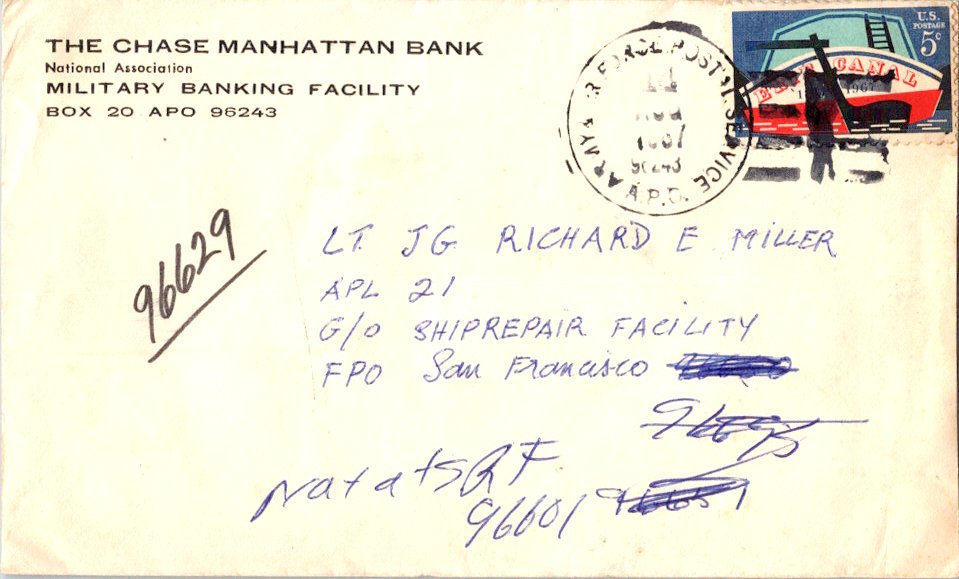 THE CHASE MANHATTAN BANK
National Association
MILITARY BANKING FACILITY
BOX 20 APO 96243
ARMY & AIR FORCE POSTAL SERVICE
1967
96243
A.P.O.
U.S.
POSTAGE
5c
ERIE CANAL
1967
96629
LT. JG RICHARD E MILLER
APL 21
C/O SHIPREPAIR FACILITY
FPO San Francisco
Not at SRF
96601